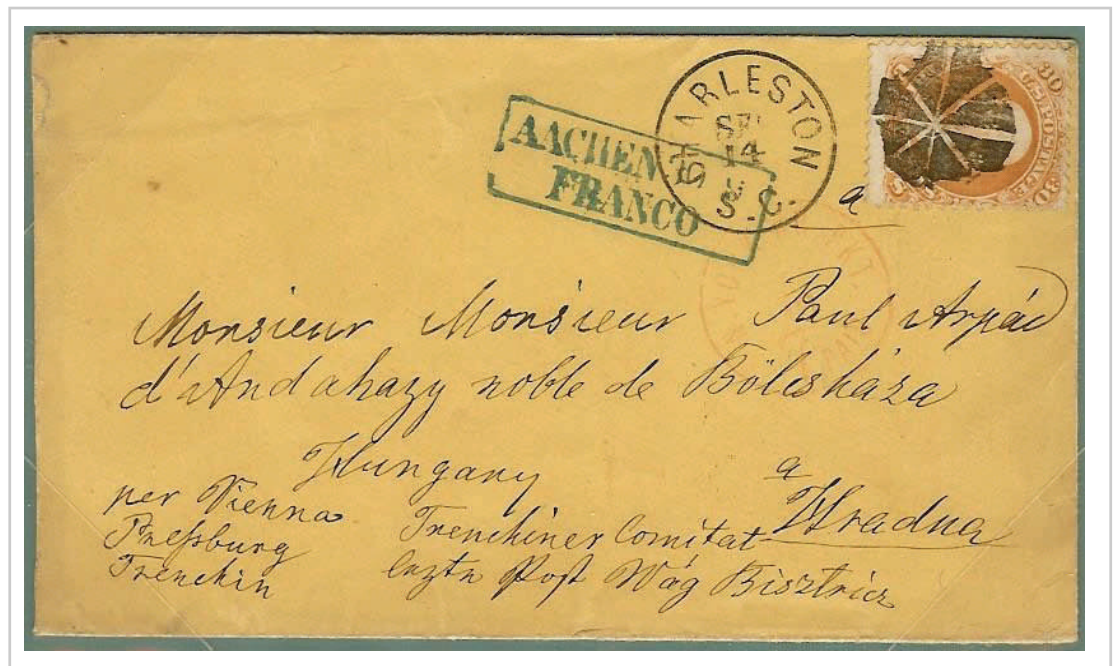 AACHEN
FRANCO
CHARLESTON
SEP
14
S.C.
30
U.S. POSTAGE
30
a
PAI
Monsieur Monsieur Paul Arpád
d'Andahazy noble de Bölcsháza
Hungary
a
Hradna
per Vienna
Preßburg
Trenchin
Trenchiner Comitat
lezte Post Wág Bisztricz